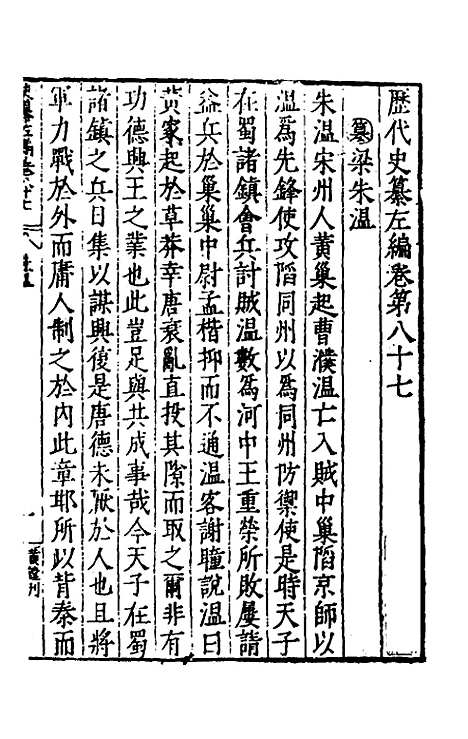 歷代史纂左編卷第八十七
篡梁朱溫
朱溫宋州人黃巢起曹濮溫亡入賊中巢陷京師以
溫爲先鋒使攻陷同州以爲同州防禦使是時天子
在蜀諸鎮會兵討賊溫數爲河中王重榮所敗屢請
益兵於巢巢中尉孟楷抑而不通溫客謝瞳說溫曰
黃家起於草莽幸唐衰亂直投其隙而取之爾非有
功德興王之業也此豈足與共成事哉今天子在蜀
諸鎮之兵日集以謀興復是唐德未厭於人也且將
軍力戰於外而庸人制之於內此章邯所以背秦而